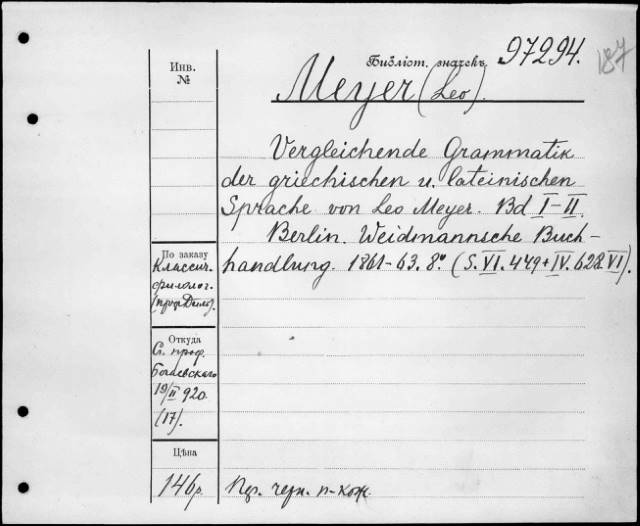 Библіот. значекъ 97294.
187
Инв.
№
Meyer (Leo).
Vergleichende Grammatik
der griechischen u. lateinischen
Sprache von Leo Meyer. Bd I–II.
Berlin. Weidmannsche Buch-
handlung. 1861–63. 8º. (S. VI. 449 + IV. 628. VI).
По заказу
Классич.
филолог.
Откуда
Богаевскаго
19/II 920.
(17).
Цѣна
146 р.
черн. п-кож.